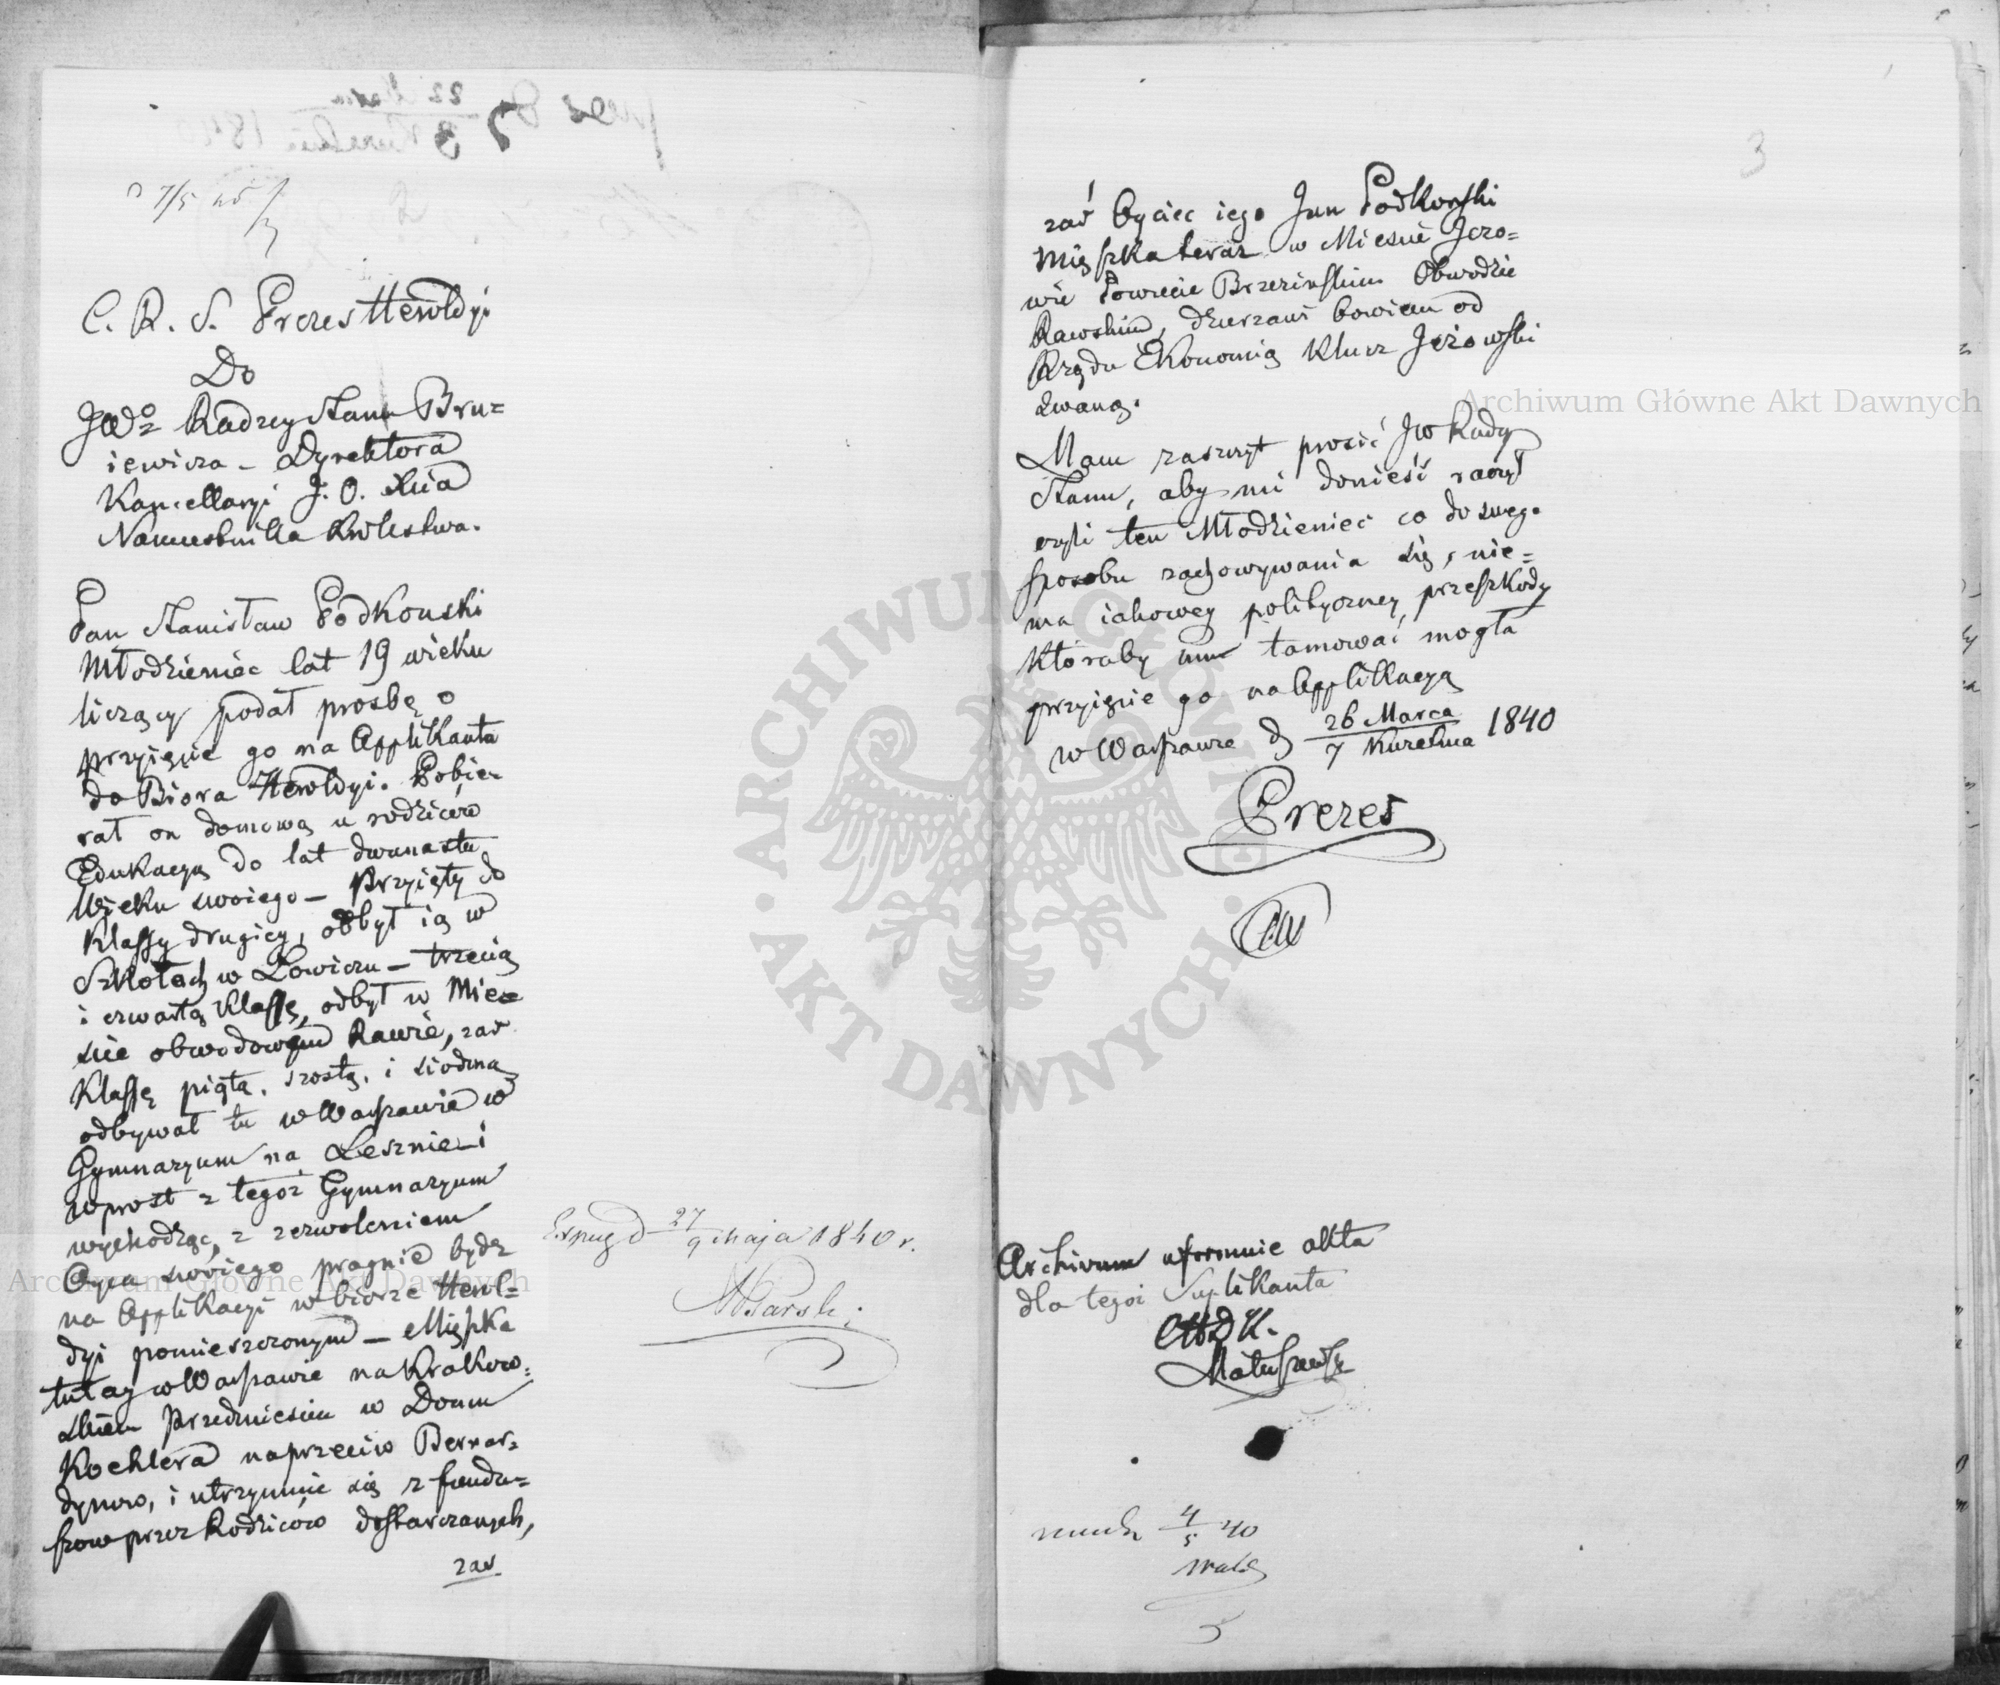 7/5
C. R. S. Prezes Heroldyi
Do
JWo Radzcy Stanu Bru=
iewicza – Dyrektora
Kancellaryi J. O. Xcia
Namiestnika Królestwa.
Pan Stanisław Podkonski
Młodzieniec lat 19 wieku
liczący podał prosbę o
przyięcie go na Applikanta
do Biora Heroldyi. Pobie=
rał on domową u rodziców
Edukacyą do lat dwunastu
Wieku swoiego – Przyięty do
Klassy drugiey, odbył ią w
Szkołach w Łowiczu – trzecią
i czwartą Klassę, odbył w Mie=
scie obwodowym Rawie, zaś
Klassę piątą, szostą, i siodmą
odbywał tu w Warszawie w
Gymnazyum na Lesznie – i
wprost z tegoż Gymnazyum
wychodząc, z zezwoleniem
Oyca swoiego pragnie bydz
na Applikacyi w biorze Herol=
dyi pomieszczonym – Mięszka
tutay w Warszawie na Krakow=
skiem Przedmiesciu w Domu
Kochlera naprzeciw Bernar=
dynow, i utrzymuie się z fundu=
szow przez Rodziców dostarczanych,
zaś
27
9 Maja 1840 r.
3
zaś Oyciec iego Jan Podkonski
mięszka teraz w Miescie Jeżo=
wie Powiecie Brzezinskim Obwodzie
Rawskim, dzierzawi bowiem od
Rządu Ekonomią Klucz Jeżowski
zwaną.
Mam zaszczyt prosić JW Radcy
Stanu, aby mi donieść raczył
czyli ten Młodzieniec co do swego
sposobu zachowywania się, nie=
ma iakowey polityczney przeszkody
któraby mu tamować mogła
przyięcie go na Applikacyą
w Warszawie d 26 Marca
7 Kwietnia 1840
Prezes
Archivum uformuie akta
dla tegoż Suplikanta
4
5 40